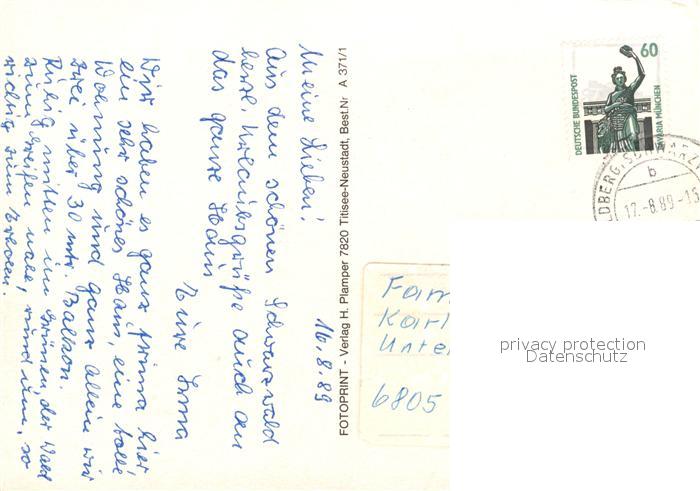 16.8.89
Meine Lieben!
Aus dem schönen Schwarzwald
herzl. Urlaubsgrüße auch an
das ganze Haus
Eure Irma
Wir haben es ganz prima hier
ein sehr schönes Haus, eine tolle
Wohnung und ganz allein wir
zwei über 30 mtr. Balkon.
Ruhig mitten im Grünen, der Wald
zum greifen nahe, rund um, so
richtig zum Erholen.
FOTOPRINT - Verlag H. Plamper 7820 Titisee-Neustadt, Best.Nr A 371/1
60
DEUTSCHE BUNDESPOST
BAVARIA MÜNCHEN
LDBERG, SCHWARZW
b
17.-8.89-15
Fam
Karl
Unter
6805
privacy protection
Datenschutz